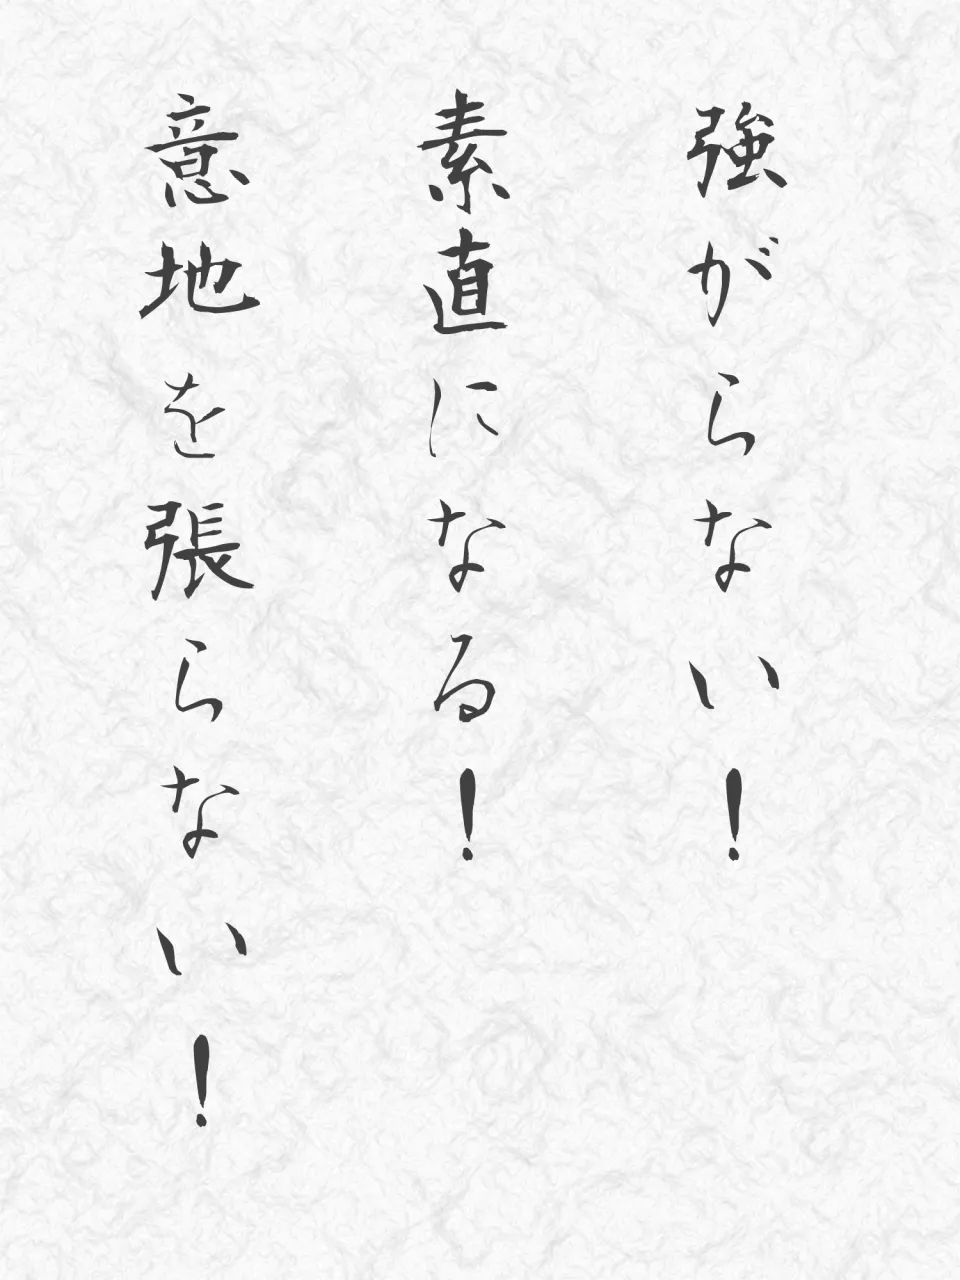 強がらない!
素直になる!
意地を張らない!